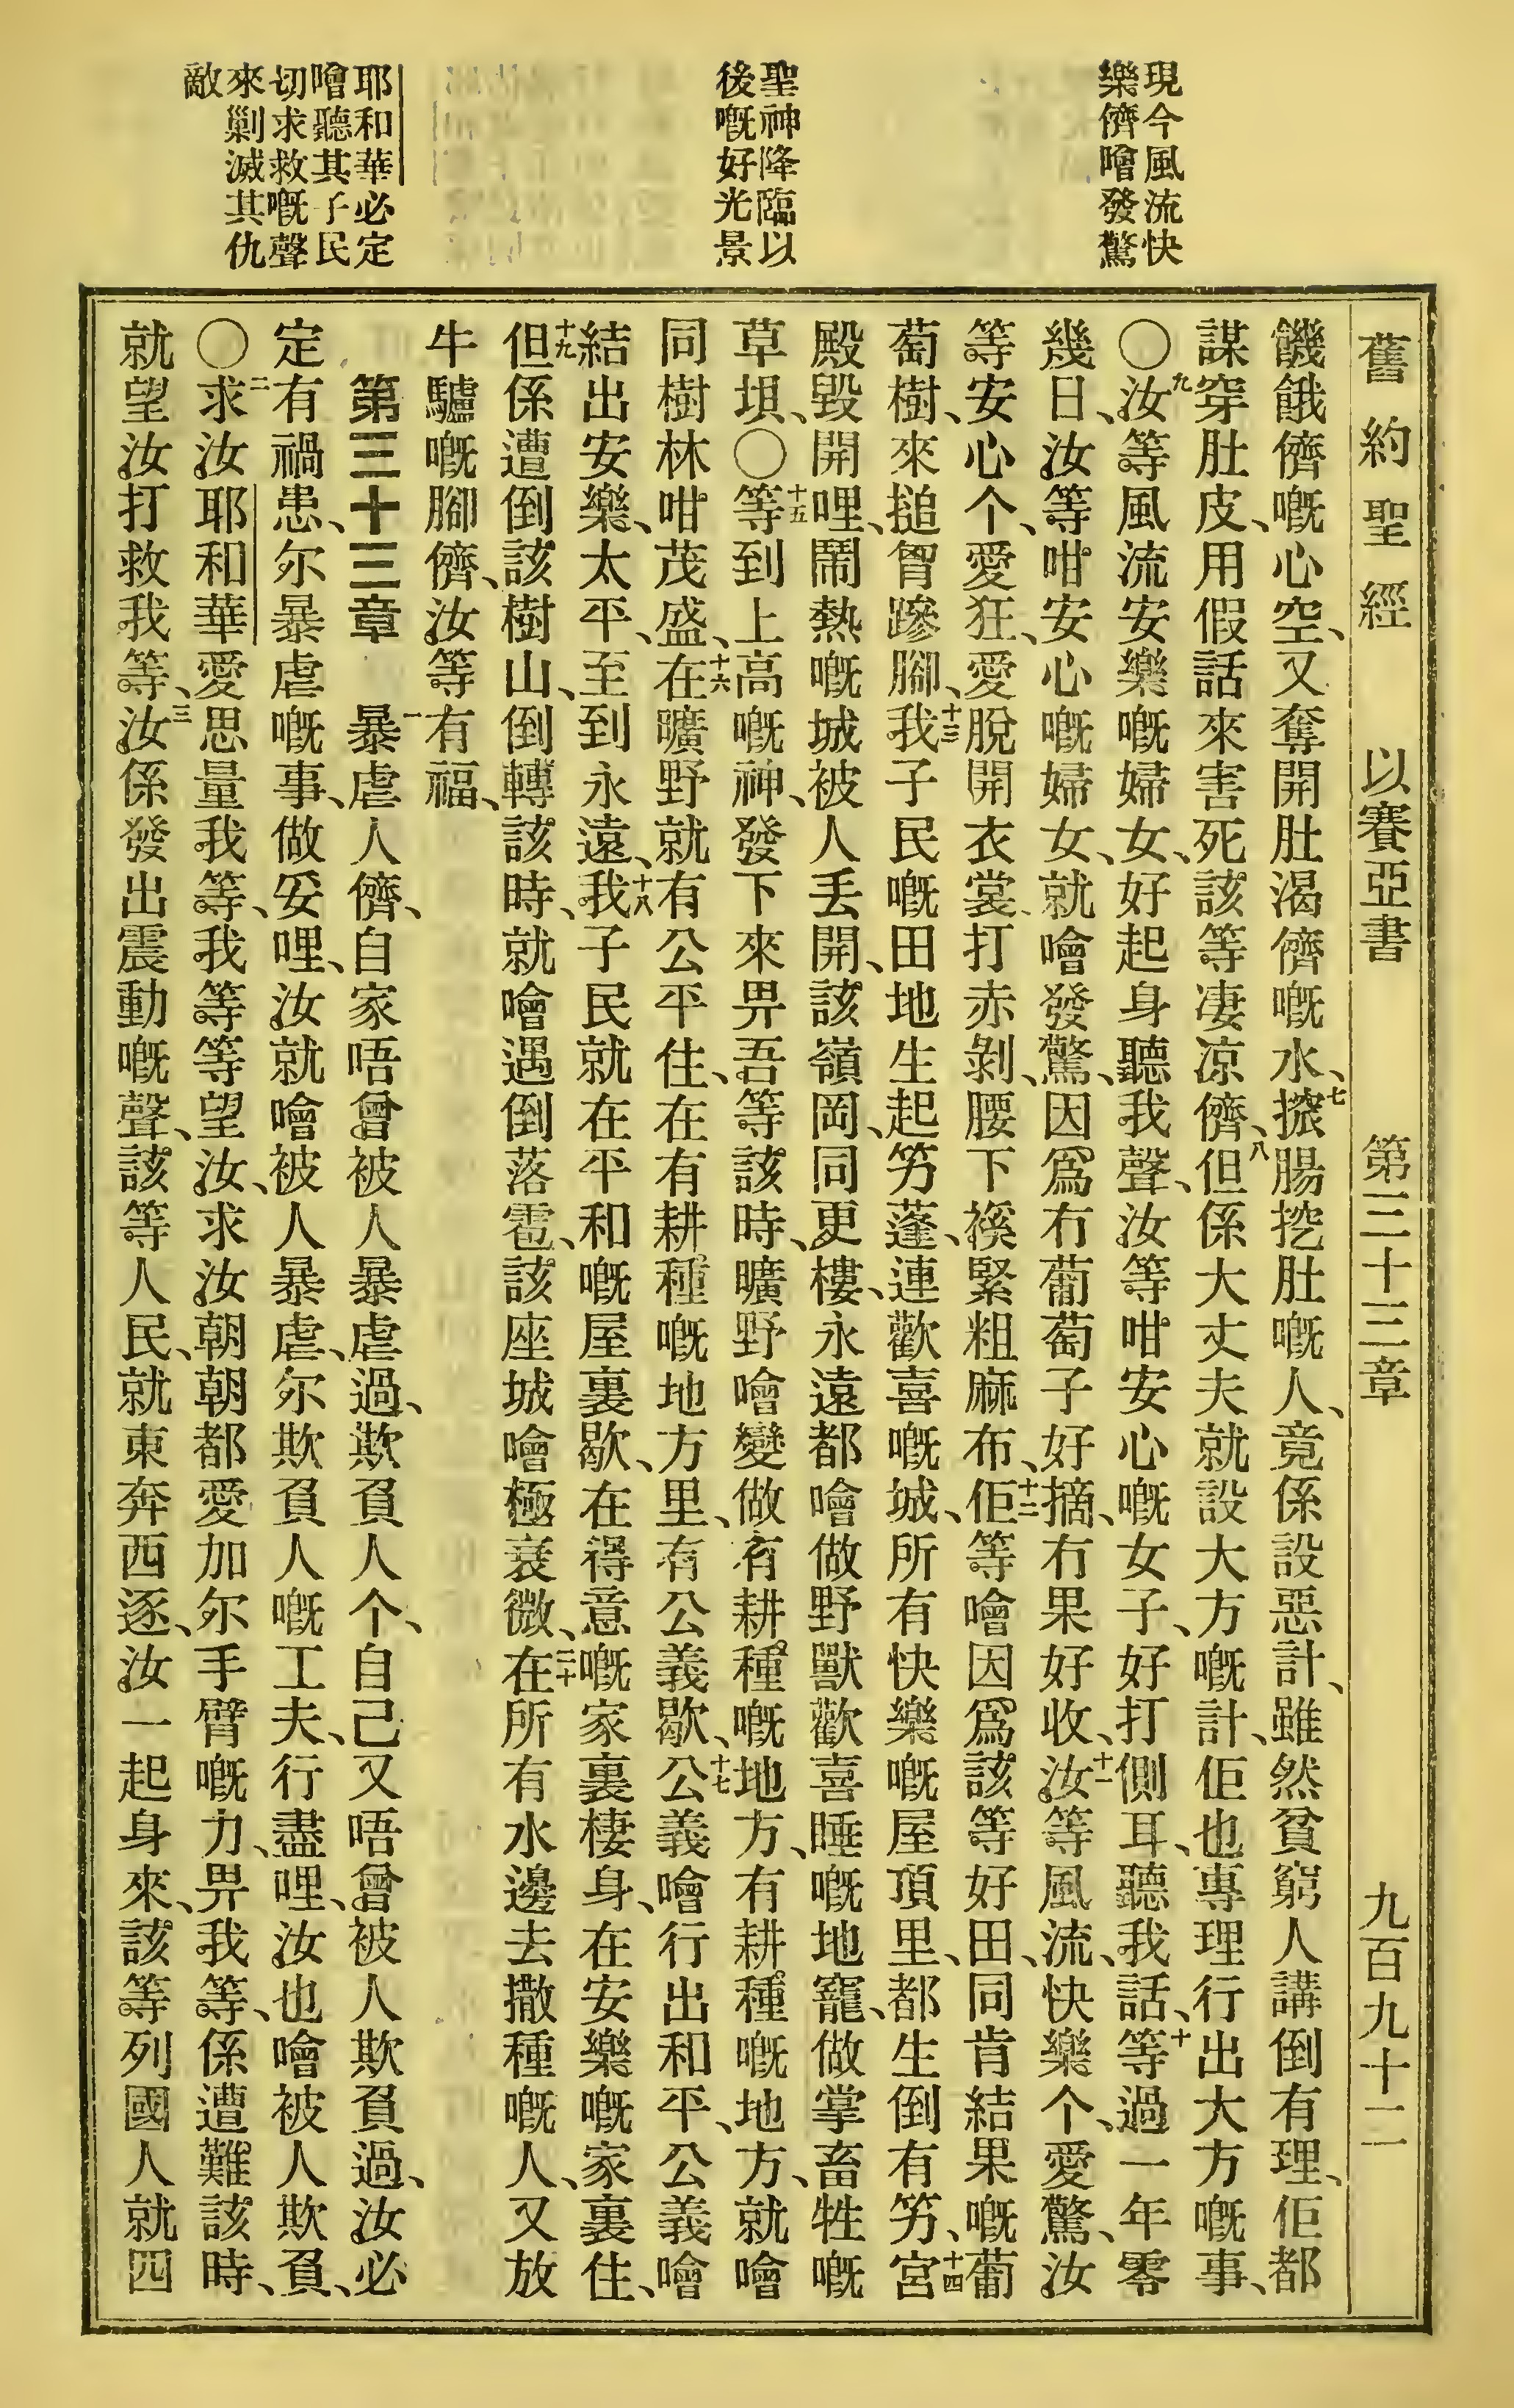 現今風流快
樂儕噲發驚
聖神降臨以
後嘅好光景
耶和華必定
噲聽其子民
切求救嘅聲
來剿滅其仇
敵
舊約聖經 以賽亞書 第三十三章 九百九十二
饑餓儕嘅心空、又奪開肚渴儕嘅水、七㧪腸挖肚嘅人、竟係設惡計、雖然貧窮人講倒有理、佢都
謀穿肚皮、用假話來害死該等凄凉儕、八但係大丈夫就設大方嘅計、佢也專理行出大方嘅事、
〇九汝等風流安樂嘅婦女、好起身聽我聲、汝等咁安心嘅女子、好打側耳、聽我話、十等過一年零
幾日、汝等咁安心嘅婦女、就噲發驚、因爲冇葡萄子好摘、冇果好收、十一汝等風流、快樂个、愛驚、汝
等安心个、愛狂、愛脫開衣裳、打赤剝、腰下褑緊粗麻布、十二佢等噲因爲該等好田、同肯結果嘅葡
萄樹、來搥胷蹽腳、十三我子民嘅田地生起竻蓬、連歡喜嘅城、所有快樂嘅屋頂里、都生倒有竻、十四宮
殿毀開哩、鬧熱嘅城被人丢開、該嶺岡、同更樓、永遠都噲做野獸歡喜睡嘅地竉、做掌畜牲嘅
草垻、〇十五等到上高嘅神、發下來畀吾等該時、曠野噲變做有耕種嘅地方、有耕種嘅地方、就噲
同樹林咁茂盛、十六在曠野就有公平住、在有耕種嘅地方里、有公義歇、十七公義噲行出和平、公義噲
結出安樂、太平、至到永遠、十八我子民就在平和嘅屋裏歇、在得意嘅家裏棲身、在安樂嘅家裏住、
十九但係遭倒該樹山、倒轉該時、就噲遇倒落雹、該座城噲極衰微、二十在所有水邊去撒種嘅人、又放
牛驢嘅腳儕、汝等有福、
第三十三章 一暴虐人儕、自家唔曾被人暴虐過、欺負人个、自己又唔曾被人欺負過、汝必
定有禍患、尔暴虐嘅事、做妥哩、汝就噲被人暴虐、尔欺負人嘅工夫、行盡哩、汝也噲被人欺負、
〇二求汝耶和華愛思量我等、我等等望汝、求汝朝朝都愛加尔手臂嘅力、畀我等、係遭難該時、
就望汝打救我等、三汝係發出震動嘅聲、該等人民、就東奔西逐、汝一起身來、該等列國人就四